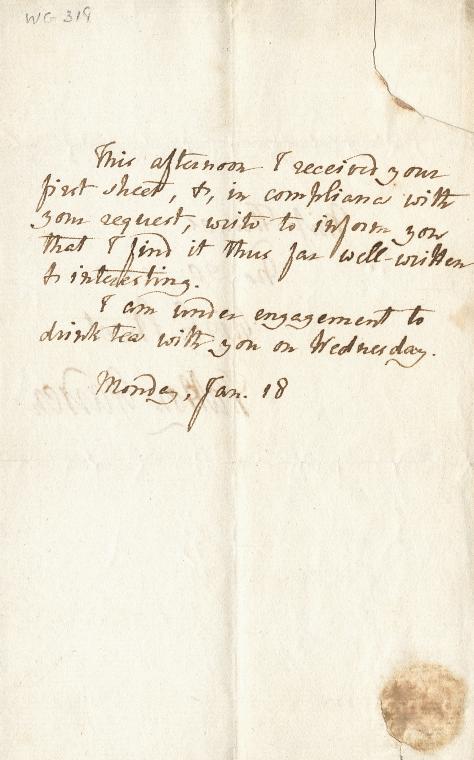 WG 319
This afternoon I received your
first sheet, &, in compliance with
your request, write to inform you
that I find it thus far well-written
& interesting.
I am under engagement to
drink tea with you on Wednesday.
Monday, Jan. 18